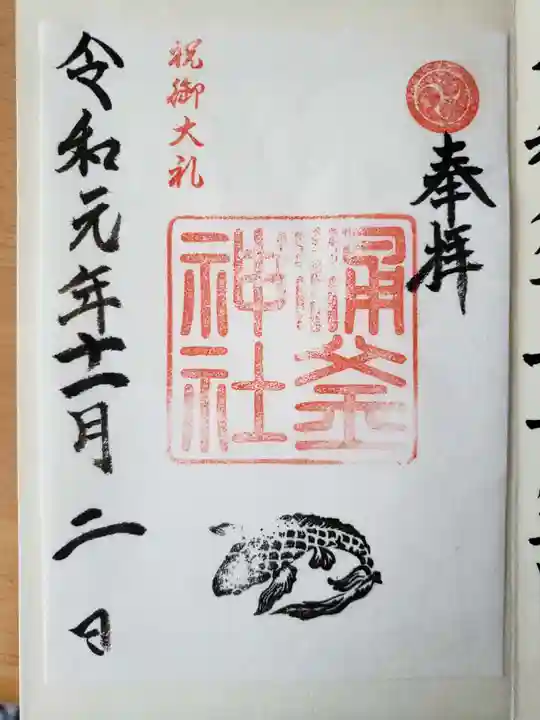 奉拝
祝御大礼
涌釜
神社
令和元年十一月二日